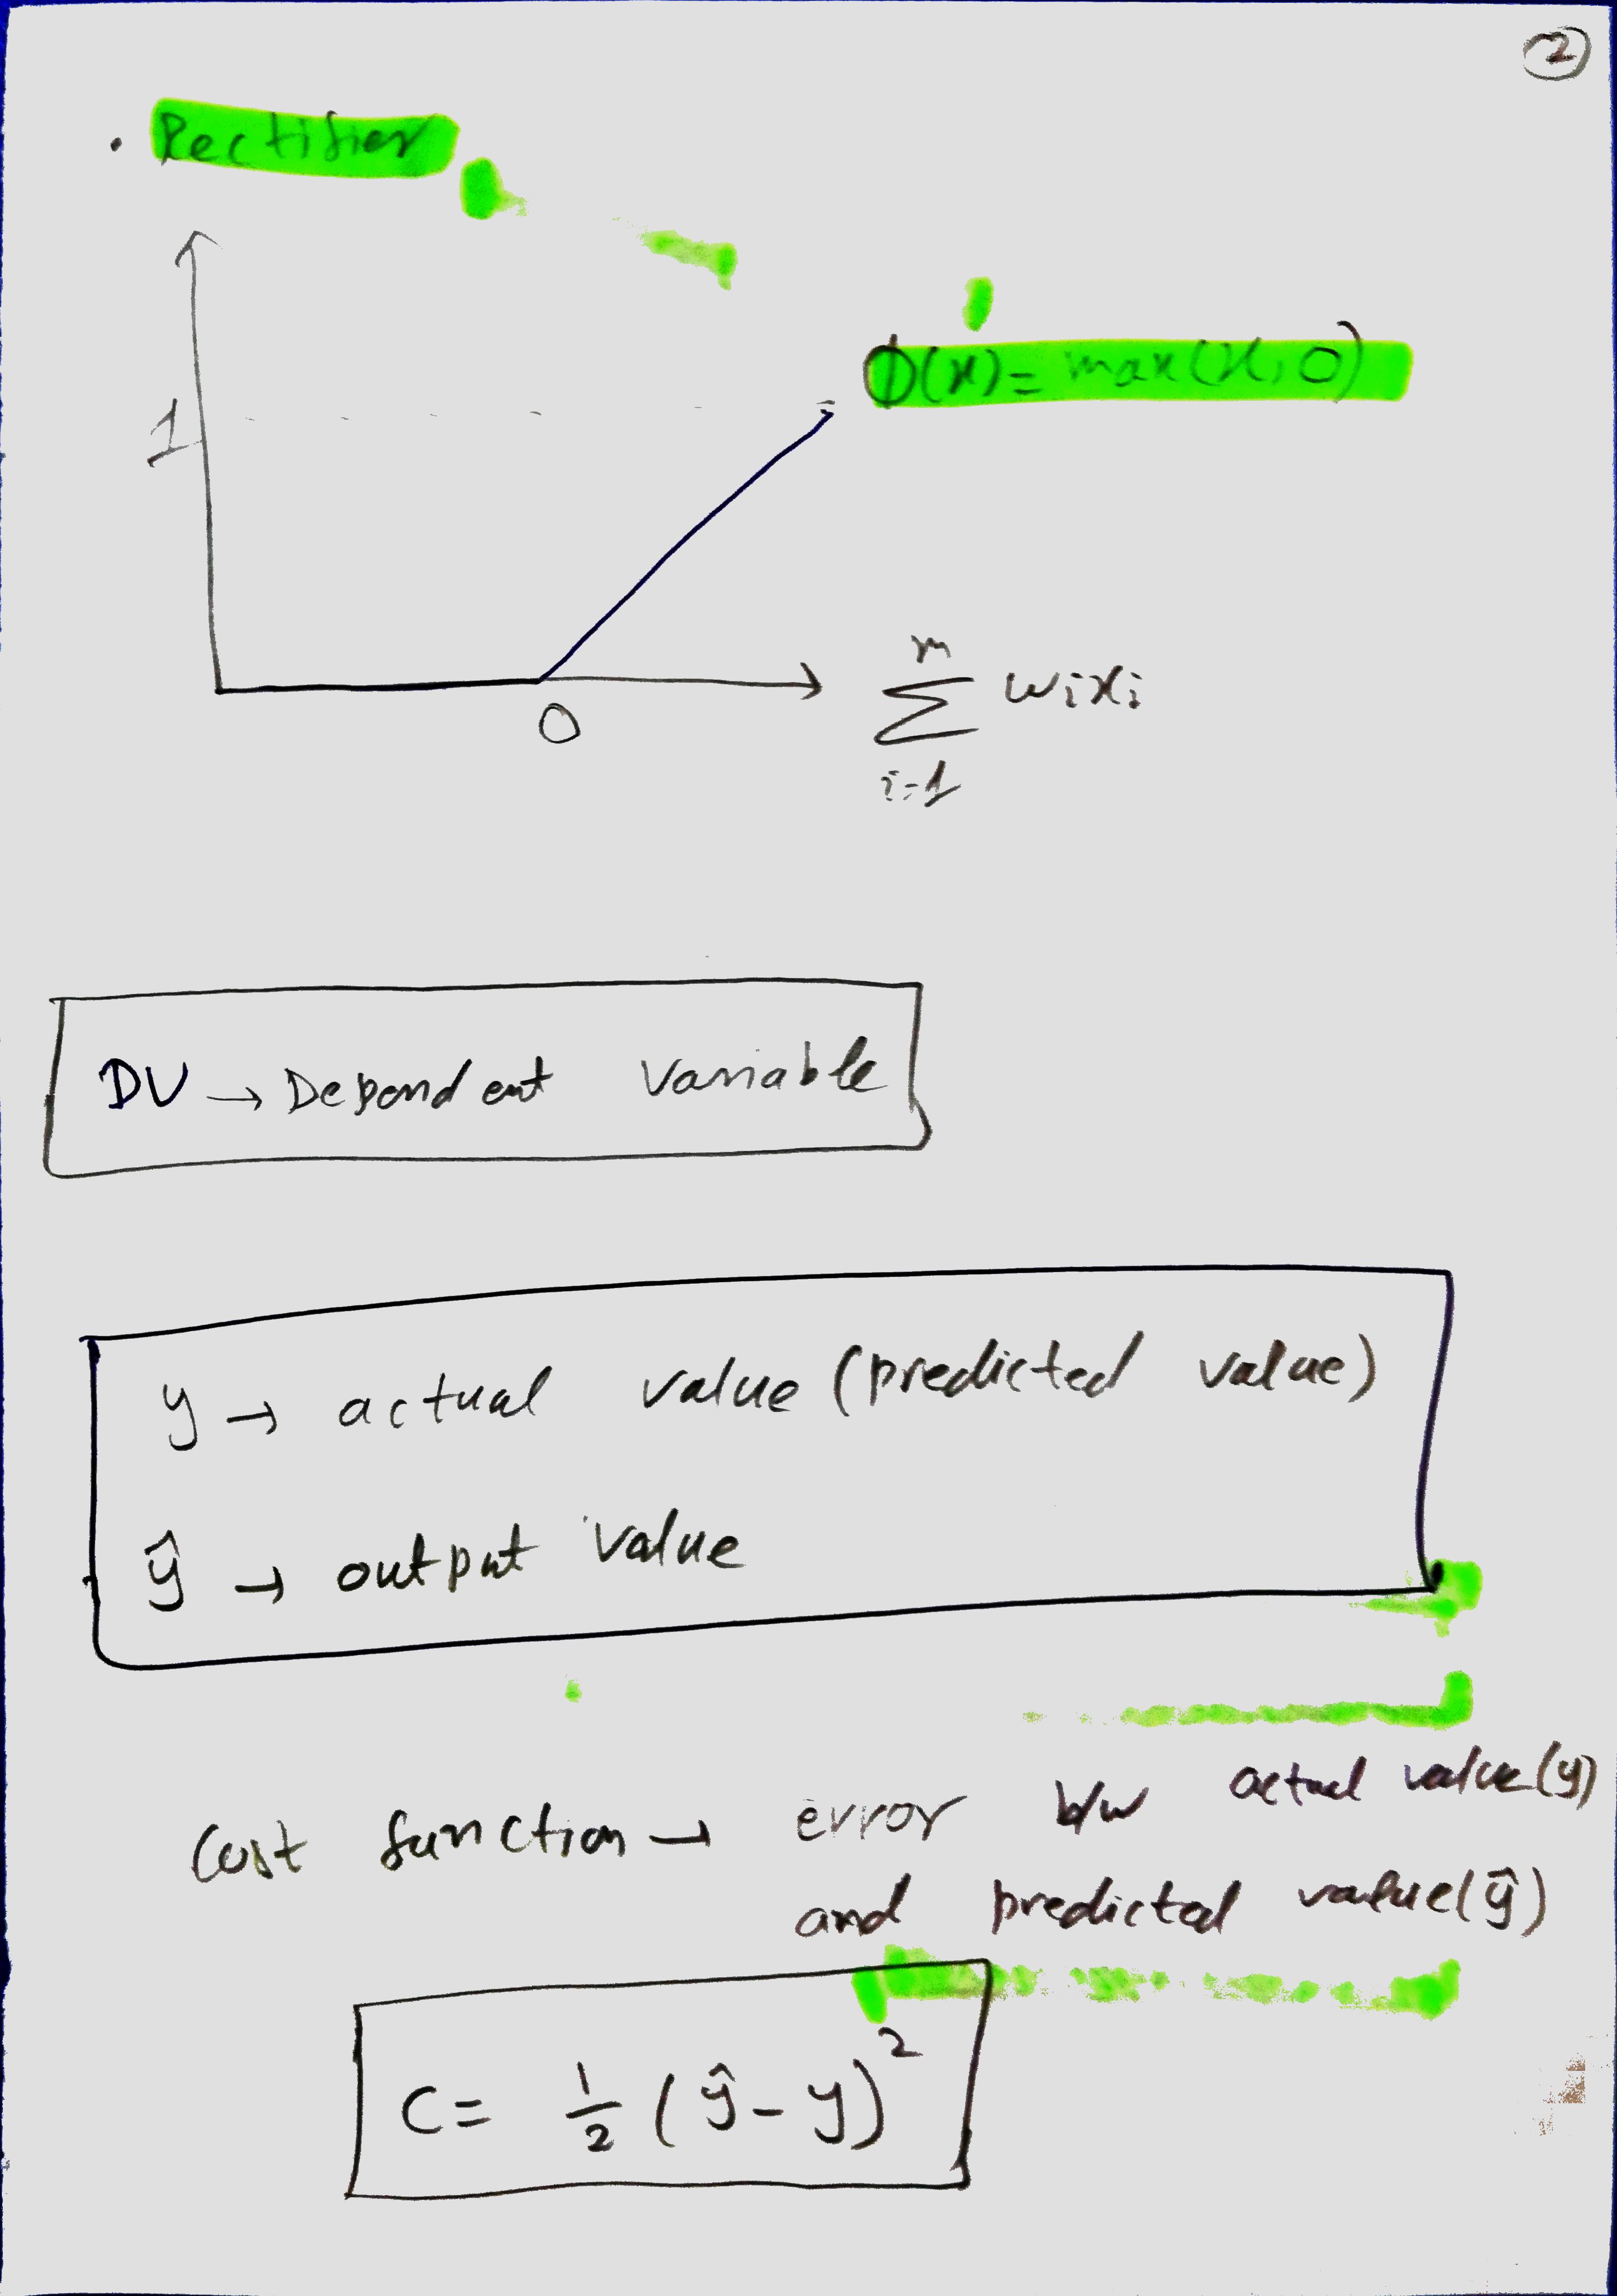 2
. Rectifier
Φ(x) = max(x, 0)
1
0
m
Σ wixi
i=1
DV → Dependent Variable
y → actual value (predicted value)
ŷ → output value
Cost function → error b/w actual value (y)
and predicted value (ŷ)
C = 1/2 (ŷ - y)²